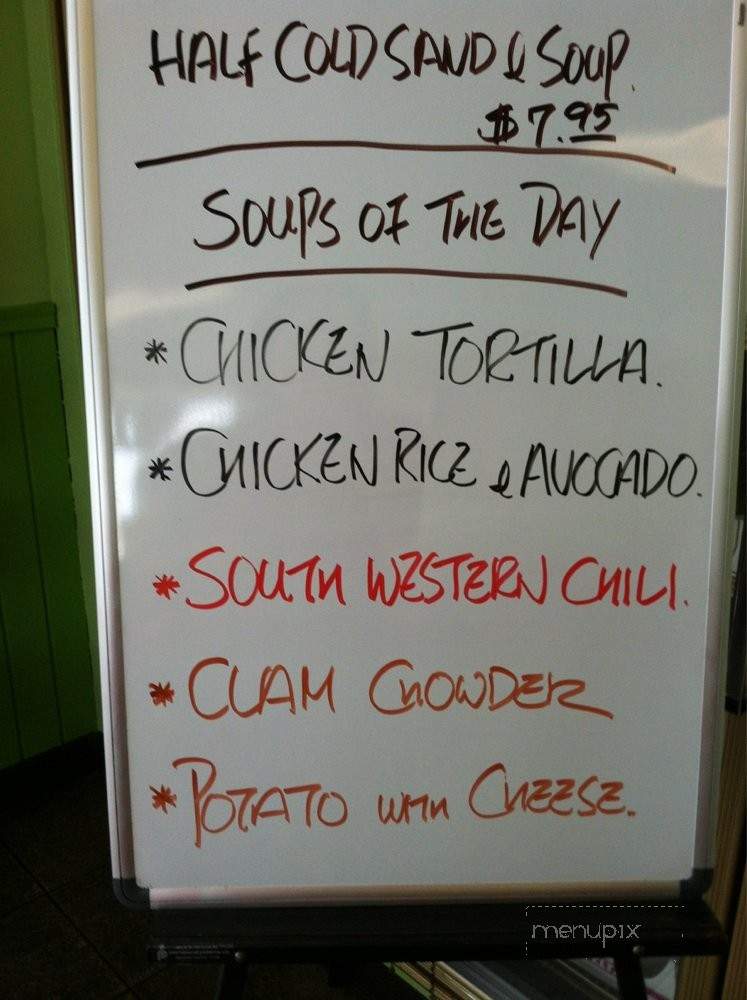 HALF COLD SAND & SOUP.
$7.95
SOUPS OF THE DAY
* CHICKEN TORTILLA.
* CHICKEN RICE & AVOCADO.
* SOUTH WESTERN CHILI.
* CLAM CHOWDER
* POTATO WITH CHEESE.
menupix